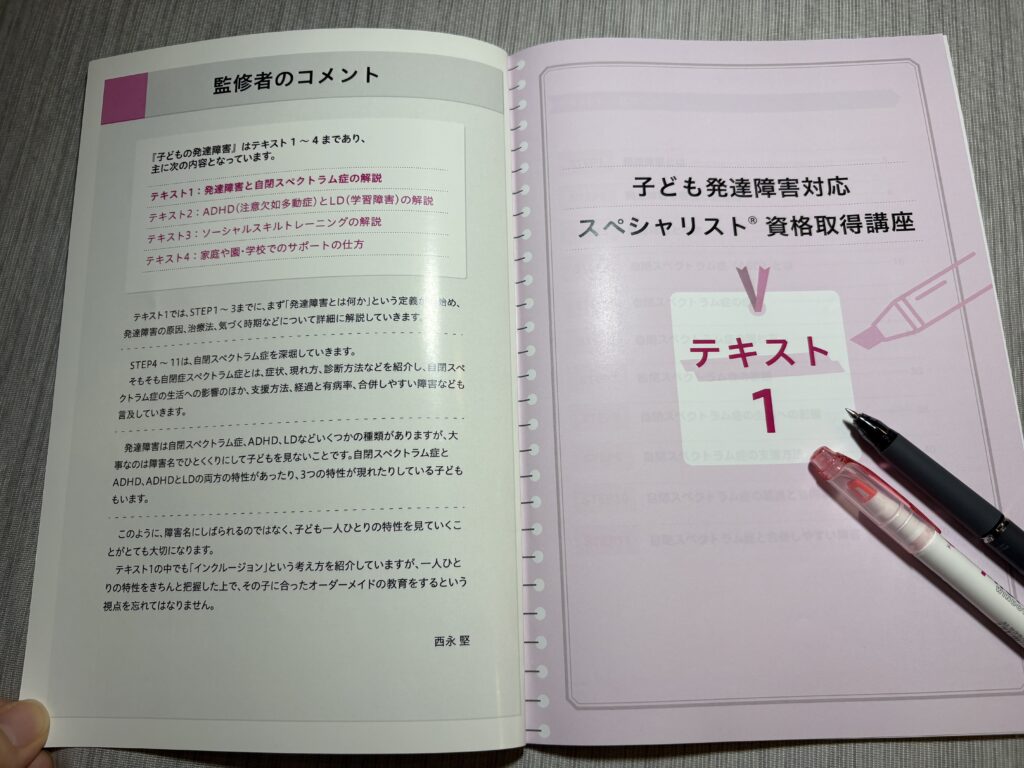 監修者のコメント
『子どもの発達障害』はテキスト1〜4まであり、
主に次の内容となっています。
テキスト1：発達障害と自閉スペクトラム症の解説
テキスト2：ADHD（注意欠如多動症）とLD（学習障害）の解説
テキスト3：ソーシャルスキルトレーニングの解説
テキスト4：家庭や園・学校でのサポートの仕方
テキスト1では、STEP1〜3までに、まず「発達障害とは何か」という定義から始め、
発達障害の原因、治療法、気づく時期などについて詳細に解説していきます。
STEP4〜11は、自閉スペクトラム症を深堀していきます。
そもそも自閉症スペクトラム症とは、症状、現れ方、診断方法などを紹介し、自閉スペ
クトラム症の生活への影響のほか、支援方法、経過と有病率、合併しやすい障害なども
言及していきます。
発達障害は自閉スペクトラム症、ADHD、LDなどいくつかの種類がありますが、大
事なのは障害名でひとくくりにして子どもを見ないことです。自閉スペクトラム症と
ADHD、ADHDとLDの両方の特性があったり、3つの特性が現れたりしている子ども
もいます。
このように、障害名にしばられるのではなく、子ども一人ひとりの特性を見ていくこ
とがとても大切になります。
テキスト1の中でも「インクルージョン」という考え方を紹介していますが、一人ひと
りの特性をきちんと把握した上で、その子に合ったオーダーメイドの教育をするという
視点を忘れてはなりません。
西永 堅
子ども発達障害対応
スペシャリスト® 資格取得講座
テキスト
1